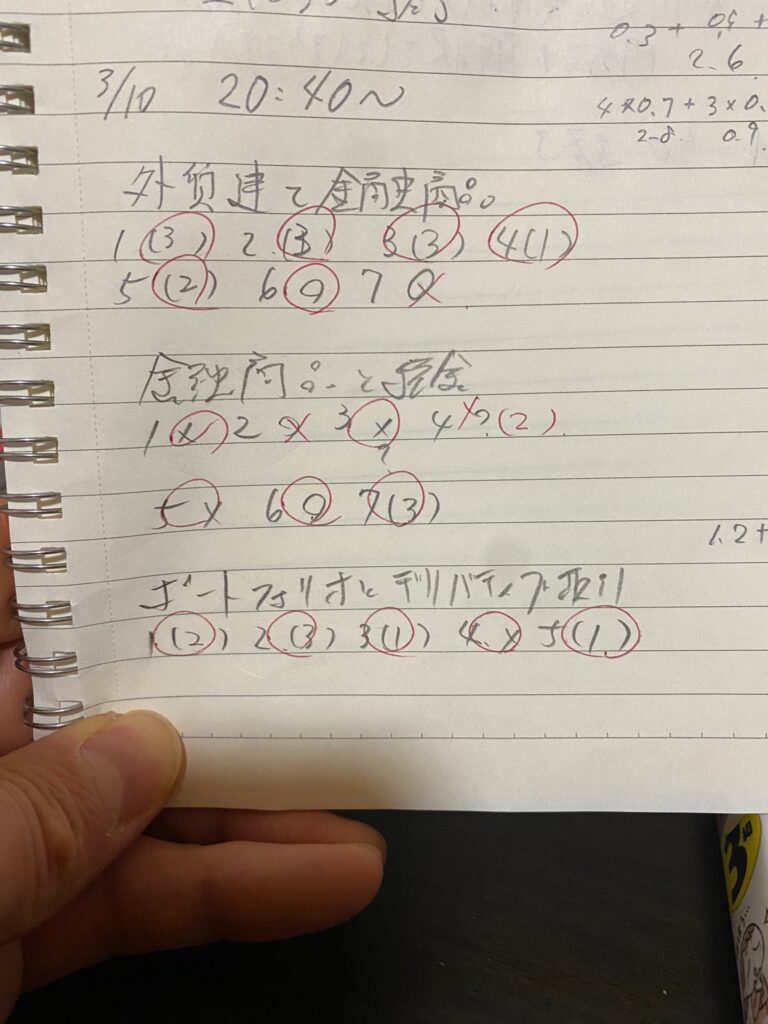 0.3 + 0.5 +
2.6
3/10 20:40~
4×0.7 + 3×0.
2.8 0.9
外貨建て金融商品
1 (3) 2 (3) 3 (3) 4 (1)
5 (2) 6 ○ 7 ○
金融商品と税金
1 × 2 × 3 × 4 ×? (2)
?
5 × 6 ○ 7 (3)
1.2+
ポートフォリオとデリバティブ取引
1 (2) 2 (3) 3 (1) 4 × 5 (1)
3級